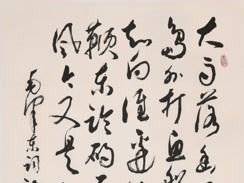 大雨落幽
岛外打鱼船
知向谁边
鞭东临碣石
风今又是
毛泽东词